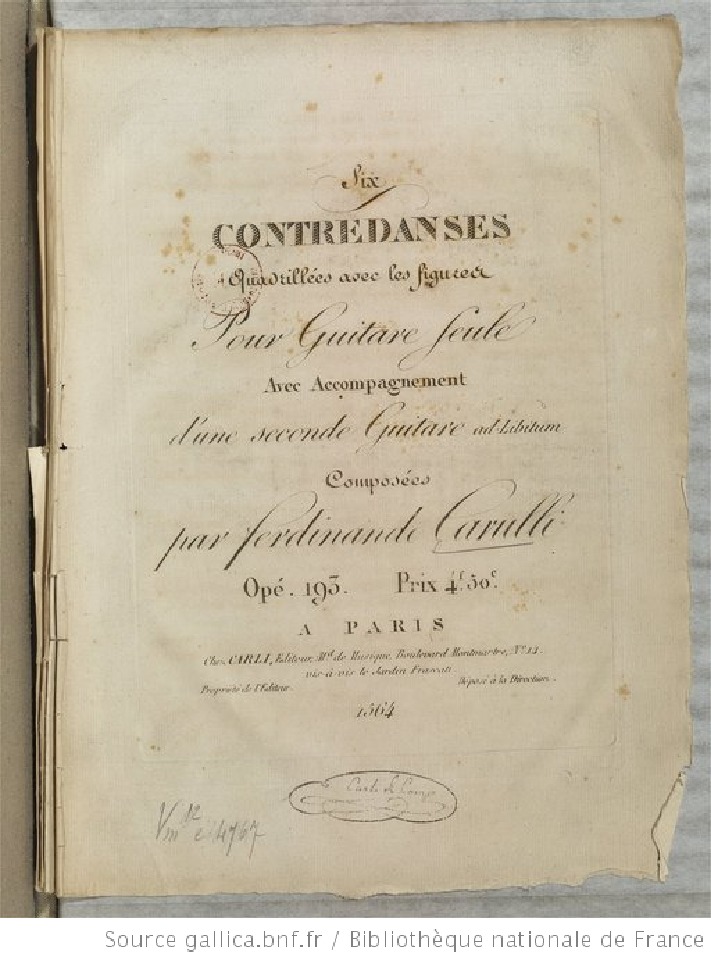 Six
CONTREDANSES
Quadrillées avec les figures
Pour Guitare Seule
Avec Accompagnement
d'une seconde Guitare ad-Libitum
Composées
par Ferdinando Carulli
Opé. 193. Prix 4f. 50c.
A PARIS
Chez CARLI, Editeur, Md. de Musique, Boulevard Montmartre, No. 13.
vis-à-vis le Jardin Frascati
Propriété de l'Editeur. Déposé à la Direction.
1564
Carli & Comp
Vm 12 e 4767
Source gallica.bnf.fr / Bibliothèque nationale de France